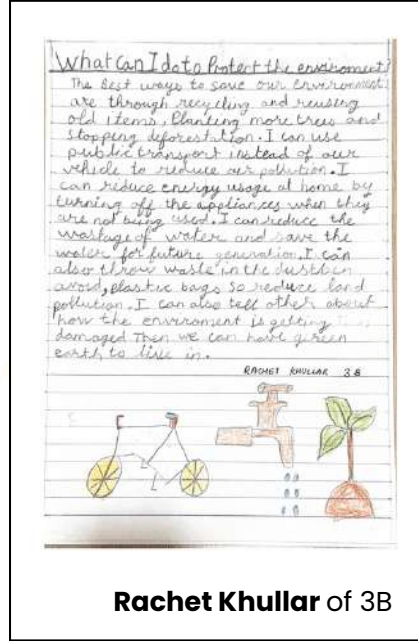 What Can I do to Protect the enviroment?
The Best ways to save our environment
are through recycling and reusing
old items, Planting more trees and
stopping deforestation. I can use
public transport instead of our
vehicle to reduce air pollution. I
can reduce energy usage at home by
turning off the appliances when they
are not being used. I can reduce the
wastage of water and save the
water for future generation. I can
also throw waste in the dustbin
avoid, plastic bags so reduce land
pollution. I can also tell other about
how the enviroment is getting
damaged Then we can have green
earth to live in.
RACHET KHULLAR 3B
Rachet Khullar of 3B